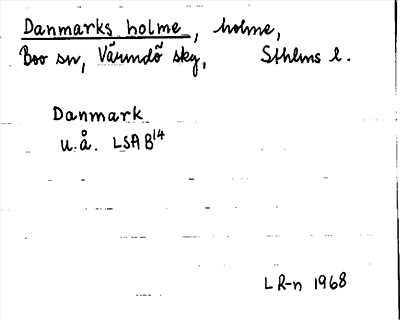 Danmarks holme, holme,
Boo sn, Värmdö skg, Sthlms l.
Danmark
u.å. LSA B14
LR-n 1968